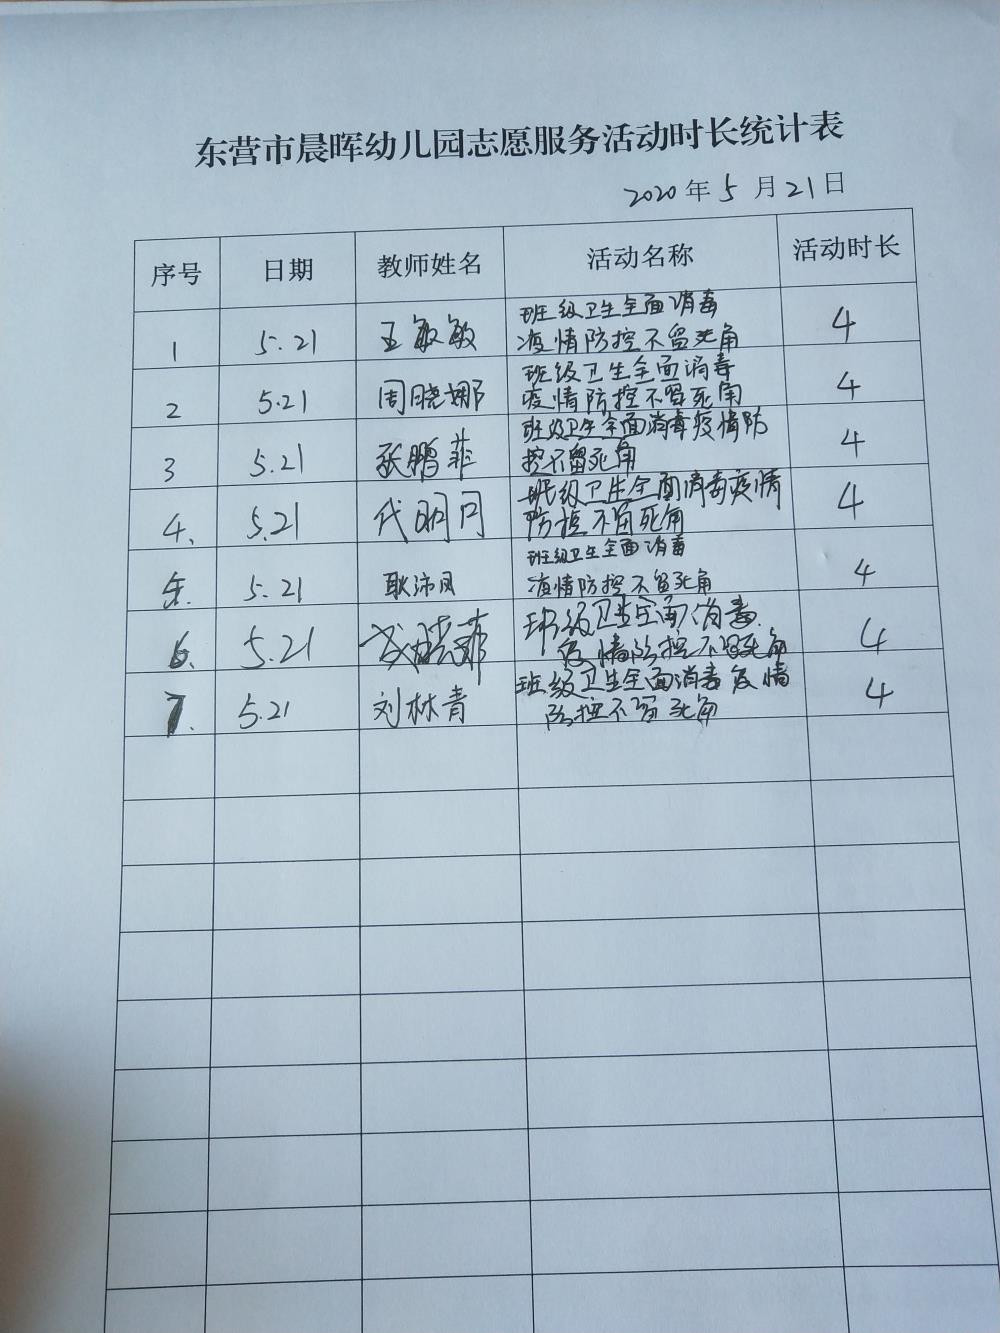 东营市晨晖幼儿园志愿服务活动时长统计表
2020年5月21日
序号 日期 教师姓名 活动名称 活动时长
1 5.21 王敏敏 班级卫生全面消毒 4
疫情防控不留死角
2 5.21 周晓娜 班级卫生全面消毒 4
疫情防控不留死角
3 5.21 张鹏菲 班级卫生全面消毒疫情防 4
控不留死角
4. 5.21 代明月 班级卫生全面消毒疫情 4
防控不留死角
5. 5.21 耿沛凤 班级卫生全面消毒 4
疫情防控不留死角
6. 5.21 班级卫生全面消毒. 4
疫情防控不留死角
7. 5.21 刘林青 班级卫生全面消毒疫情 4
防控不留死角